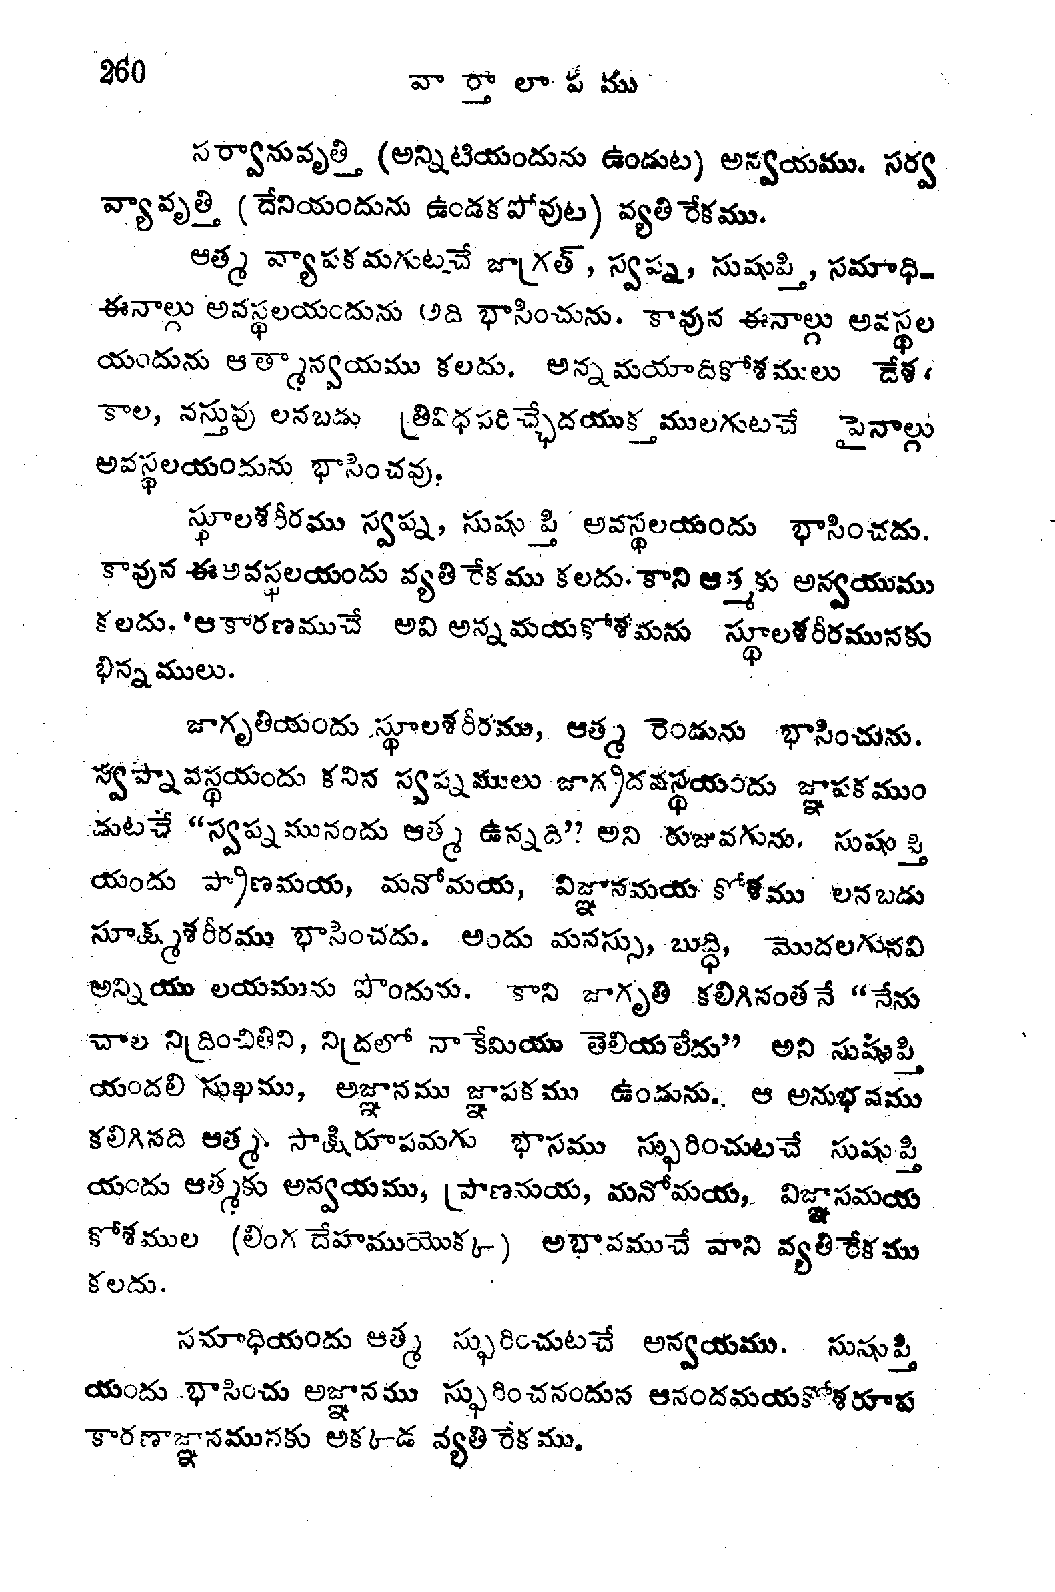 260
వార్తాలాపము
సర్వానువృత్తి (అన్నిటియందును ఉండుట) అన్వయము. సర్వ
వ్యావృత్తి (దేనియందును ఉండకపోవుట) వ్యతిరేకము.
ఆత్మ వ్యాపకమగుటచే జాగ్రత్, స్వప్న, సుషుప్తి, సమాధి-
ఈనాల్గు అవస్థలయందును అది భాసించును. కావున ఈనాల్గు అవస్థల
యందును ఆత్మాన్వయము కలదు. అన్నమయాదికోశములు దేశ
కాల, వస్తువు లనబడు త్రివిధపరిచ్ఛేదయుక్తములగుటచే పైనాల్గు
అవస్థలయందును భాసించవు.
స్థూలశరీరము స్వప్న, సుషుప్తి అవస్థలయందు భాసించదు.
కావున ఈఅవస్థలయందు వ్యతిరేకము కలదు. కాని ఆత్మకు అన్వయము
కలదు. ఆకారణముచే అవి అన్నమయకోశమను స్థూలశరీరమునకు
భిన్నములు.
జాగృతియందు స్థూలశరీరము, ఆత్మ రెండును భాసించును.
స్వప్నావస్థయందు కనిన స్వప్నములు జాగ్రదవస్థయందు జ్ఞాపకముం
డుటచే “స్వప్నమునందు ఆత్మ ఉన్నది” అని రుజువగును. సుషుప్తి
యందు ప్రాణమయ, మనోమయ, విజ్ఞానమయ కోశము లనబడు
సూక్ష్మశరీరము భాసించదు. అందు మనస్సు, బుద్ధి, మొదలగునవి
అన్నియు లయమును పొందును. కాని జాగృతి కలిగినంతనే “నేను
చాల నిద్రించితిని, నిద్రలో నాకేమియు తెలియలేదు” అని సుషుప్తి
యందలి సుఖము, అజ్ఞానము జ్ఞాపకము ఉండును. ఆ అనుభవము
కలిగినది ఆత్మ. సాక్షిరూపమగు భాసము స్ఫురించుటచే సుషుప్తి
యందు ఆత్మకు అన్వయము, ప్రాణమయ, మనోమయ, విజ్ఞానమయ
కోశముల (లింగదేహముయొక్క) అభావముచే వాని వ్యతిరేకము
కలదు.
సమాధియందు ఆత్మ స్ఫురించుటచే అన్వయము. సుషుప్తి
యందు భాసించు అజ్ఞానము స్ఫురించనందున ఆనందమయకోశరూప
కారణాజ్ఞానమునకు అక్కడ వ్యతిరేకము.